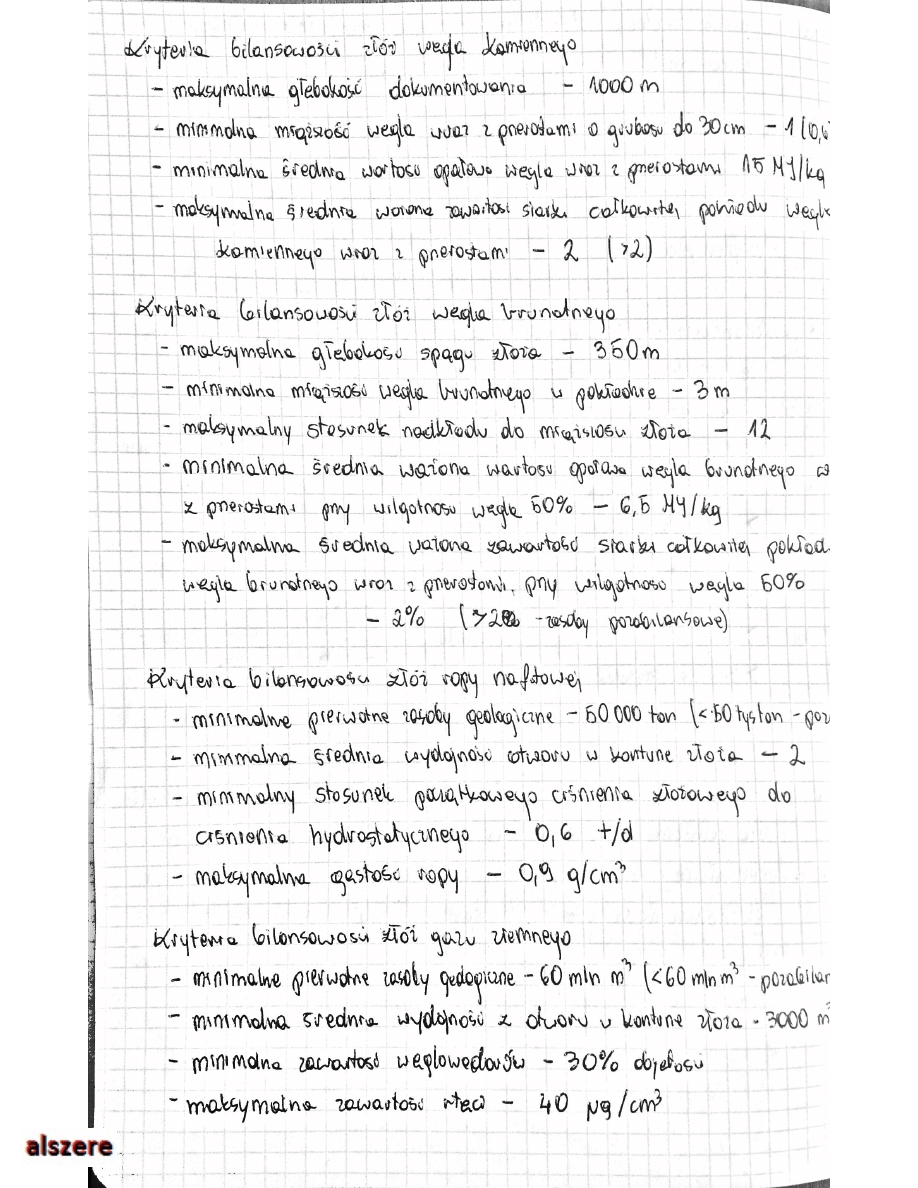 Kryteria bilansowości złóż węgla kamiennego
- maksymalna głębokość dokumentowania - 1000 m
- minimalna miąższość węgla wraz z przerostami o grubości do 30cm - 1 (0,6
- minimalna średnia wartość opałowa węgla wraz z przerostami 15 MJ/kg
- maksymalna średnia ważona zawartość siarki całkowitej pokładu węgla
kamiennego wraz z przerostami - 2 (>2)
Kryteria bilansowości złóż węgla brunatnego
- maksymalna głębokość spągu złoża - 350 m
- minimalna miąższość węgla brunatnego w pokładzie - 3 m
- maksymalny stosunek nadkładu do miąższości złoża - 12
- minimalna średnia ważona wartość opałowa węgla brunatnego w
z przerostami przy wilgotności węgla 50% - 6,5 MJ/kg
- maksymalna średnia ważona zawartość siarki całkowitej pokład
węgla brunatnego wraz z przerostami, przy wilgotności węgla 50%
- 2% (>2% - zasoby pozabilansowe)
Kryteria bilansowości złóż ropy naftowej
- minimalne pierwotne zasoby geologiczne - 50 000 ton (<50 tys ton - poz
- minimalna średnia wydajność otworu w konturze złoża - 2
- minimalny stosunek początkowego ciśnienia złożowego do
ciśnienia hydrostatycznego - 0,6 t/d
- maksymalna gęstość ropy - 0,9 g/cm³
Kryteria bilansowości złóż gazu ziemnego
- minimalne pierwotne zasoby geologiczne - 60 mln m³ (<60 mln m³ - pozabilan
- minimalna średnia wydajność z otworu w konturze złoża - 3000 m³
- minimalna zawartość węglowodorów - 30% objętości
- maksymalna zawartość rtęci - 40 µg/cm³
alszere